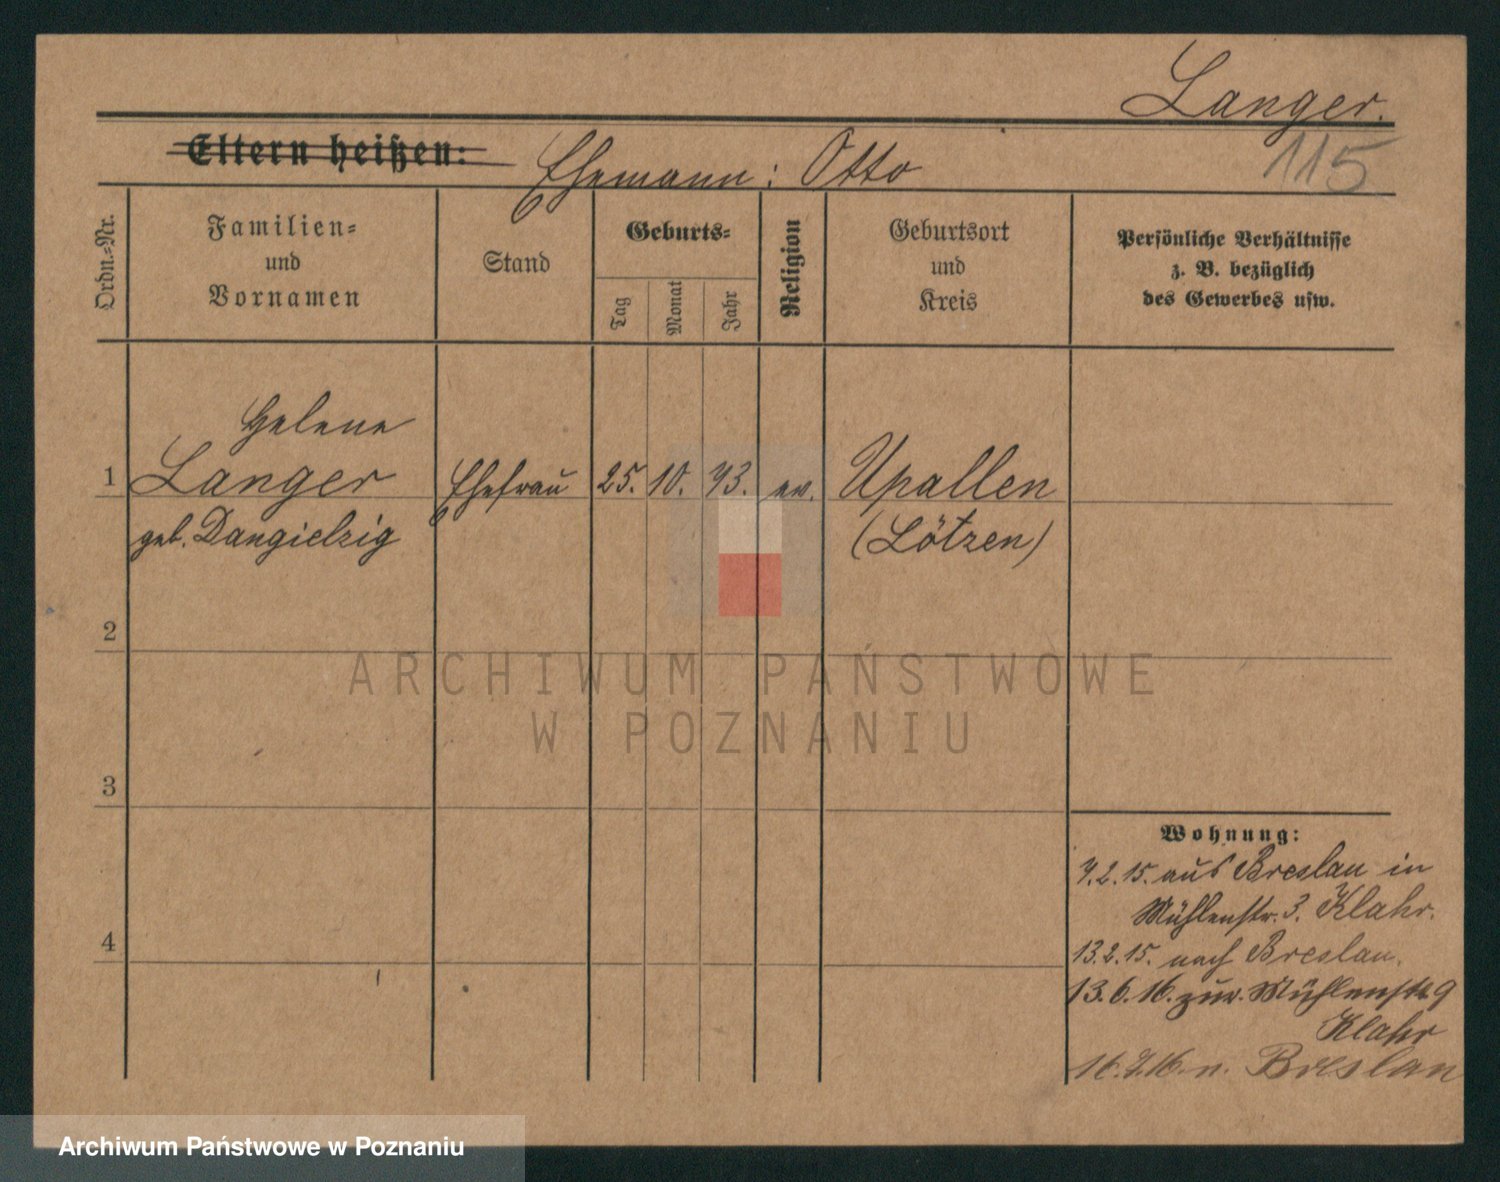 Langer.
115
Eltern heißen: Ehemann: Otto
Ordn.-Nr.
Familien-
und
Vornamen
Stand
Geburts-
Tag
Monat
Jahr
Religion
Geburtsort
und
Kreis
Persönliche Verhältnisse
z. B. bezüglich
des Gewerbes usw.
Helene
1 Langer Ehefrau 25. 10. 73. ev. Upallen
geb. Dangielzig (Lötzen)
2
3
4
Wohnung:
7.2.15. aus Breslau in
Mühlenstr. 3. Klahr.
13.2.15. nach Breslau.
13.6.16. zur. Mühlenstr. 9
Klahr
16.7.16 n. Breslau
ARCHIWUM PAŃSTWOWE
W POZNANIU
Archiwum Państwowe w Poznaniu